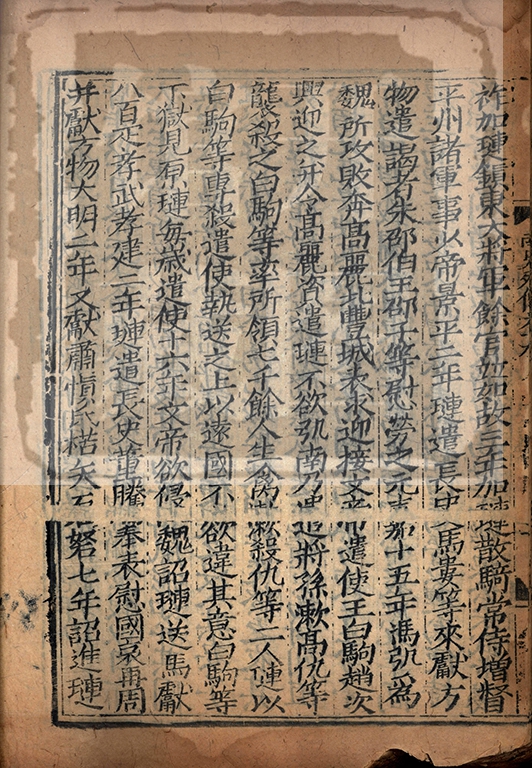 祚加璉鎮東大將軍餘官並如故三年加璉散騎常侍增督
平州諸軍事少帝景平二年璉遣長史馬婁等來獻方
物遣謁者朱邵伯王邵子等慰勞之元嘉十五年馮弘爲
魏所攻敗奔高麗北豐城表求迎接文帝遣使王白駒趙次
興迎之并令高麗資遣璉不欲弘南乃遣將孫漱高仇等
襲殺之白駒等率所領七千餘人生禽漱殺仇等二人璉以
白駒等專殺遣使執送之上以遠國不欲違其意白駒等
下獄見原璉每歲遣使十六年文帝欲侵魏詔璉送馬獻
八百疋孝武孝建二年璉遣長史董騰奉表慰國哀再周
并獻方物大明二年又獻肅慎氏楛矢石砮七年詔進璉